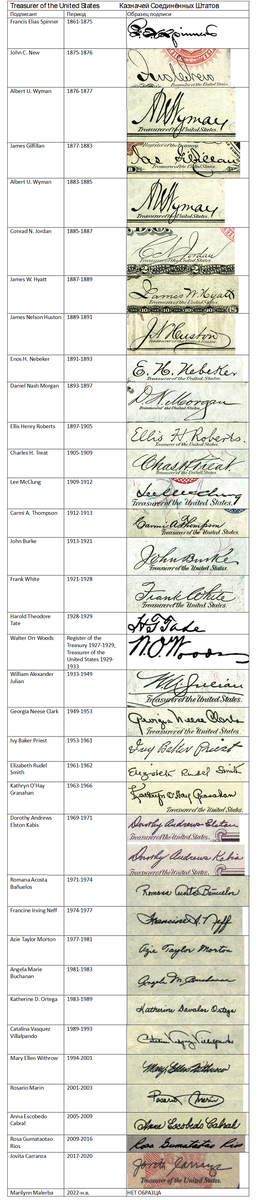 Treasurer of the United States Казначей Соединённых Штатов
Подписант Период Образец подписи
Francis Elias Spinner 1861-1875
John C. New 1875-1876
Treasurer of the United States.
Albert U. Wyman 1876-1877
A.U. Wyman
Treasurer of the United States.
James Gilfillan 1877-1883
Register of the Treasury
Jas Gilfillan
Treasurer of the United States.
Albert U. Wyman 1883-1885
A.U. Wyman
Treasurer of the United States.
Conrad N. Jordan 1885-1887
C.N. Jordan
Treasurer of the United States.
James W. Hyatt 1887-1889
James W. Hyatt
Treasurer of the United States.
James Nelson Huston 1889-1891
J.N. Huston
Treasurer of the United States.
Enos H. Nebeker 1891-1893
E. H. Nebeker
Treasurer of the United States.
Daniel Nash Morgan 1893-1897
D. N. Morgan
Treasurer of the United States.
Ellis Henry Roberts 1897-1905
Ellis H. Roberts.
Treasurer of the United States.
Charles H. Treat 1905-1909
Chas H Treat.
Treasurer of the United States.
Lee McClung 1909-1912
Lee McClung
Treasurer of the United States.
Carmi A. Thompson 1912-1913
Carmi A Thompson
Treasurer of the United States.
John Burke 1913-1921
John Burke
Treasurer of the United States.
Frank White 1921-1928
Frank White
Treasurer of the United States.
Harold Theodore 1928-1929
Tate
H T Tate
Walter Orr Woods Register of the
Treasury 1927-1929,
Treasurer of the
United States 1929-
1933
W. O. Woods
William Alexander 1933-1949
Julian
W A Julian
Treasurer of the United States.
Georgia Neese Clark 1949-1953
Georgia Neese Clark
Treasurer of the United States.
Ivy Baker Priest 1953-1961
Ivy Baker Priest
Treasurer of the United States.
Elizabeth Rudel 1961-1962
Smith
Elizabeth Rudel Smith
Treasurer of the United States.
Kathryn O'Hay 1963-1966
Granahan
Kathryn O'Hay Granahan
Treasurer of the United States.
Dorothy Andrews 1969-1971
Elston Kabis
Dorothy Andrews Elston
Treasurer of the United States.
Dorothy Andrews Kabis
Treasurer of the United States.
Romana Acosta 1971-1974
Bañuelos
Romana Acosta Bañuelos
Francine Irving Neff 1974-1977
Francine I. Neff
Azie Taylor Morton 1977-1981
Azie Taylor Morton
Angela Marie 1981-1983
Buchanan
Angela M. Buchanan
Katherine D. Ortega 1983-1989
Katherine Davalos Ortega
Catalina Vasquez 1989-1993
Villalpando
Mary Ellen Withrow 1994-2001
Mary Ellen Withrow
Rosario Marin 2001-2003
Rosario Marin
Anna Escobedo 2005-2009
Cabral
Anna Escobedo Cabral
Rosa Gumataotao 2009-2016
Rios
Rosa Gumataotao Rios
Jovita Carranza 2017-2020
Jovita Carranza
Treasurer of the United States
Marilynn Malerba 2022-н.в. НЕТ ОБРАЗЦА